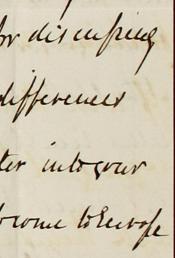 for discussing
differences
ter into your
to come to Europe